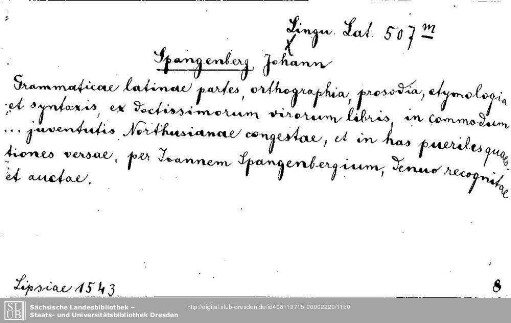 Lingu. Lat. 507 m
Spangenberg Johann
Grammaticae latinae partes, orthographia, prosodia, etymologia
et syntaxis, ex doctissimorum virorum libris, in commodum
... juventutis Northusianae congestae, et in has pueriles quaes-
tiones versae, per Joannem Spangenbergium, Denuo recognitae
et auctae.
Lipsiae 1543 8
Sächsische Landesbibliothek –
Staats- und Universitätsbibliothek Dresden